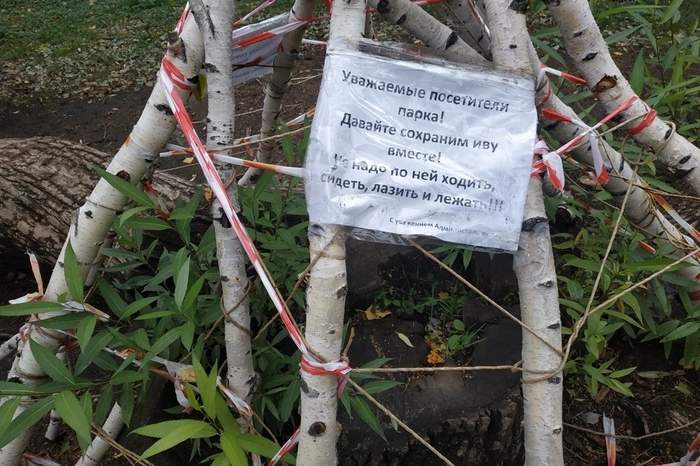 Уважаемые посетители
парка!
Давайте сохраним иву
вместе!
Не надо по ней ходить,
сидеть, лазить и лежать!!!